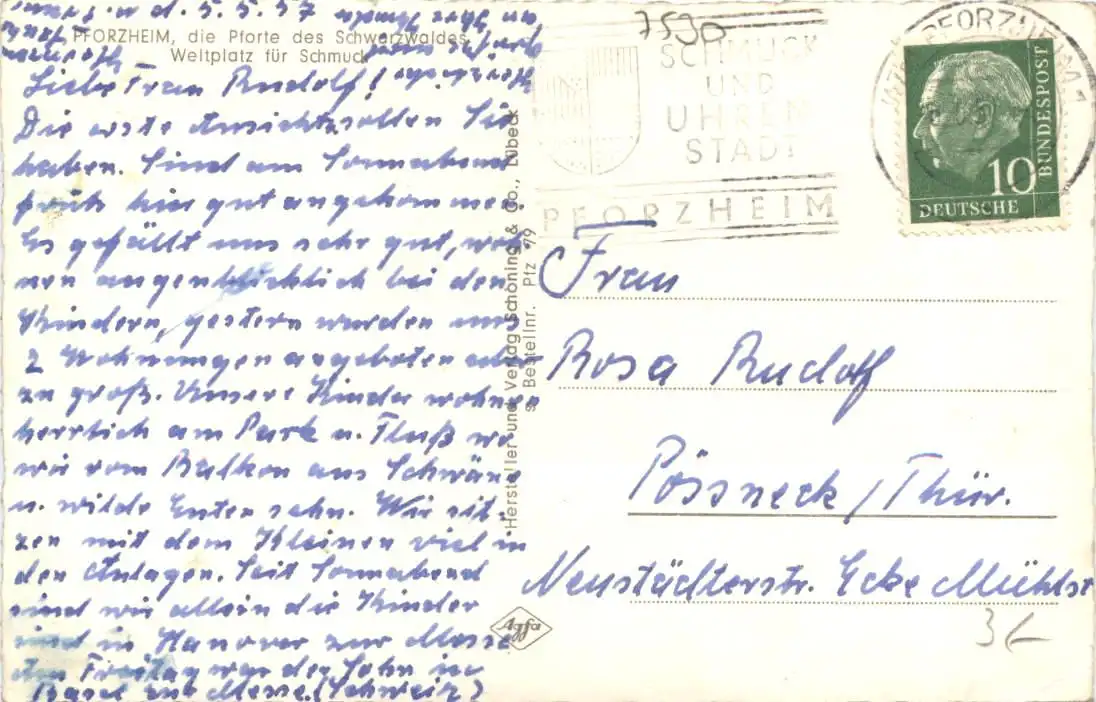 d. 5.5.57
PFORZHEIM, die Pforte des Schwarzwaldes
Weltplatz für Schmuck
Liebe Frau Rudolf!
Die erste Ansicht sollen Sie
haben. Sind am Sonnabend
früh hin gut angekommen.
Es gefällt uns sehr gut, woh
nen augenblicklich bei den
Kindern, gestern wurden uns
2 Wohnungen angeboten aber
zu groß. Unsere Kinder wohnen
herrlich am Park u. Fluß wo
wir vom Balkon aus Schwäne
u. wilde Enten sehn. Wir sit-
zen mit dem Kleinen viel in
den Anlagen. Seit Sonnabend
sind wir allein die Kinder
sind in Hanover zur Messe
Am Freitag war der Sohn in
Basel zur Messe. (Schweiz)
Hersteller und Verlag Schöning & Co., Lübeck
Bestellnr. Pfz 79
Agfa
7530
SCHMUCK
UND
UHREN
STADT
PFORZHEIM
PFORZHEIM
10
DEUTSCHE
BUNDESPOST
Frau
Rosa Rudolf
Pössneck/Thür.
Neustädterstr. Ecke Mühlst
3